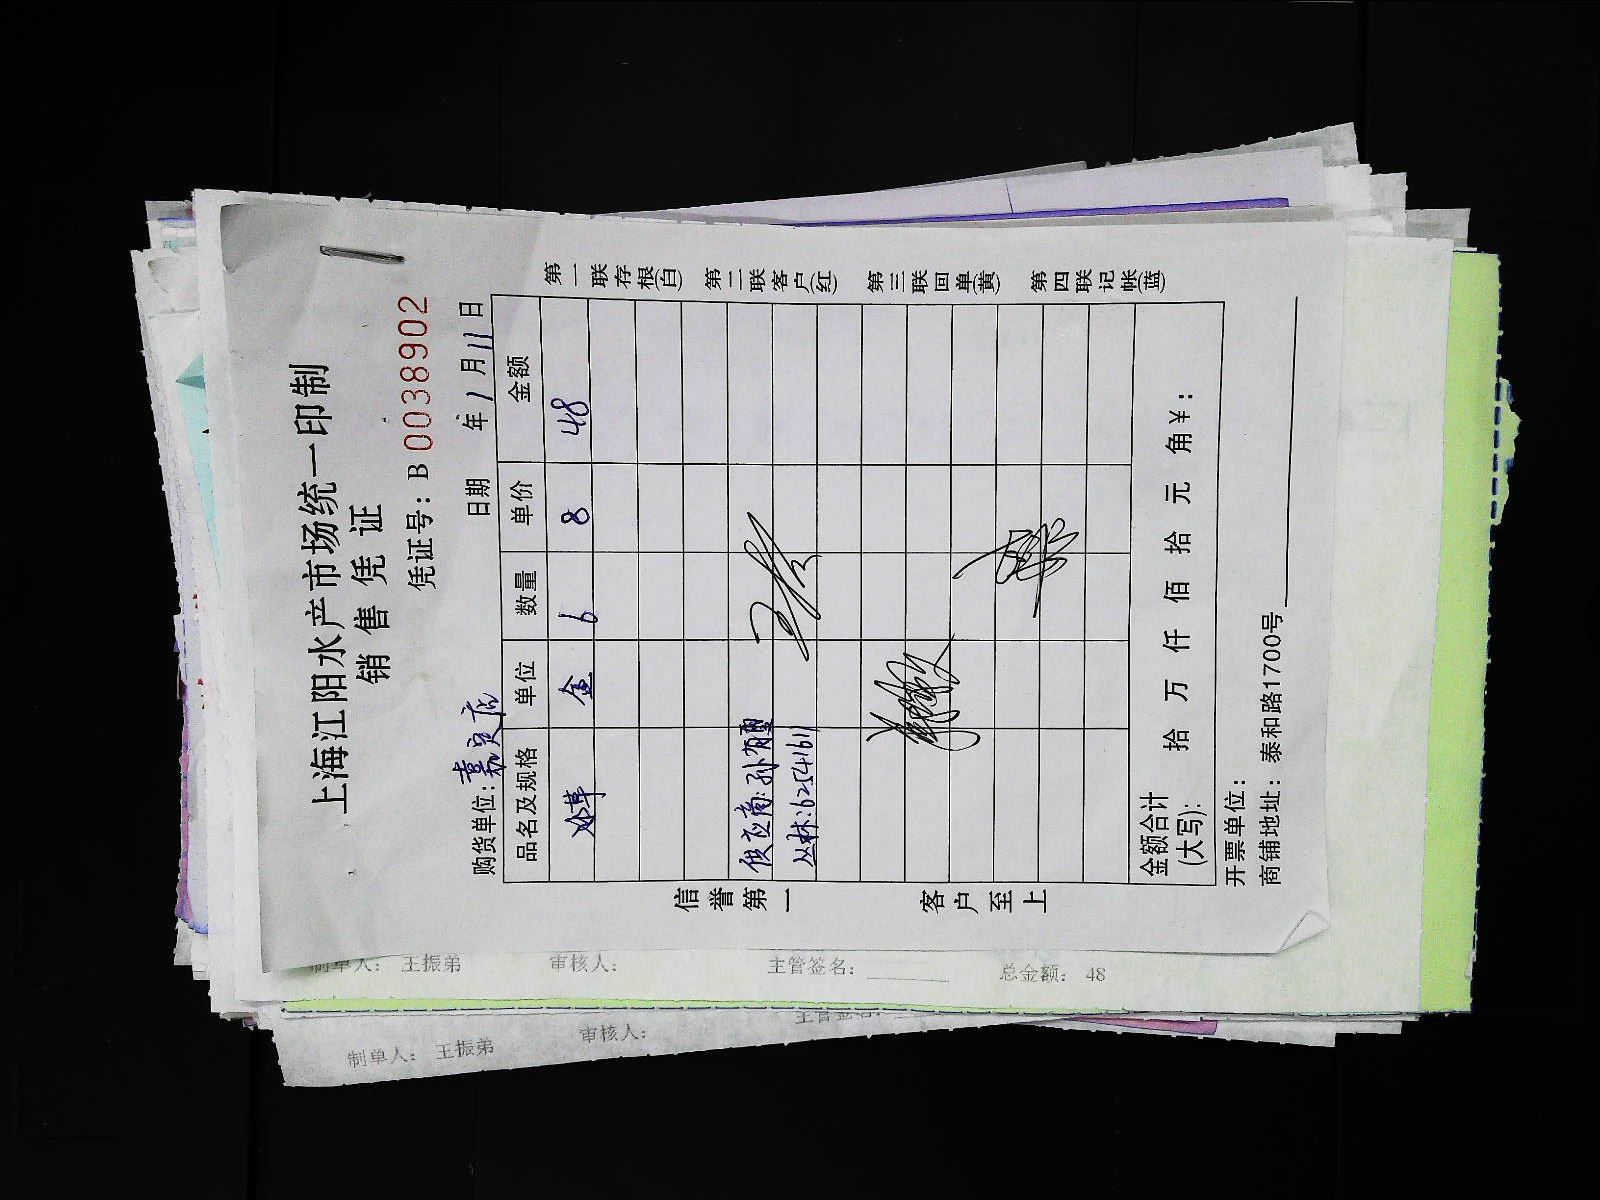 上海江阳水产市场统一印制
销售凭证
凭证号：B 0038902
购货单位：嘉定店 日期 年 1 月 11 日
品名及规格 单位 数量 单价 金额
6 8 48
供应商：孙
丛林：62541611
金额合计
(大写)： 拾 万 仟 佰 拾 元 角￥：
开票单位：
商铺地址：泰和路1700号
信誉第一 客户至上
第一联存根(白) 第二联客户(红) 第三联回单(黄) 第四联记帐(蓝)
制单人： 王振弟 审核人： 主管签名： 总金额： 48
制单人： 王振弟 审核人： 主管签名：